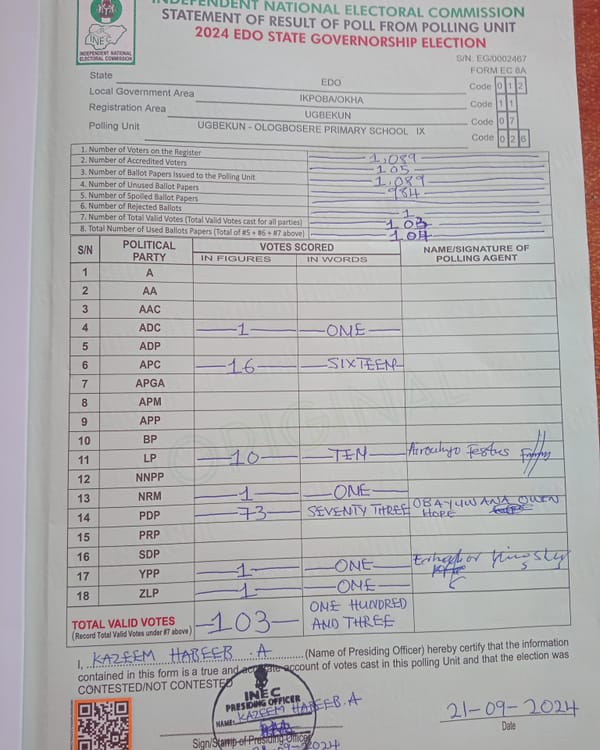 INDEPENDENT NATIONAL ELECTORAL COMMISSION
STATEMENT OF RESULT OF POLL FROM POLLING UNIT
2024 EDO STATE GOVERNORSHIP ELECTION
INEC
INDEPENDENT NATIONAL ELECTORAL COMMISSION
S/N. EG/0002467
FORM EC 8A
State EDO Code 0 1 2
Local Government Area IKPOBA/OKHA Code 1 1
Registration Area UGBEKUN Code 0 7
Polling Unit UGBEKUN - OLOGBOSERE PRIMARY SCHOOL IX Code 0 2 6
1. Number of Voters on the Register 1,089
2. Number of Accredited Voters 105
3. Number of Ballot Papers Issued to the Polling Unit 1,089
4. Number of Unused Ballot Papers 984
5. Number of Spoiled Ballot Papers
6. Number of Rejected Ballots 1
7. Number of Total Valid Votes (Total Valid Votes cast for all parties) 103
8. Total Number of Used Ballots Papers (Total of #5 + #6 + #7 above) 104
S/N POLITICAL PARTY VOTES SCORED NAME/SIGNATURE OF POLLING AGENT
IN FIGURES IN WORDS
1 A
2 AA
3 AAC
4 ADC 1 ONE
5 ADP
6 APC 16 SIXTEEN
7 APGA
8 APM
9 APP
10 BP
11 LP 10 TEN Festus
12 NNPP
13 NRM 1 ONE
14 PDP 73 SEVENTY THREE OBAYUWANA OWEN HOPE
15 PRP
16 SDP
17 YPP 1 ONE
18 ZLP 1 ONE
TOTAL VALID VOTES 103 ONE HUNDRED AND THREE
(Record Total Valid Votes under #7 above)
ORIGINAL
I, KAZEEM HABEEB .A (Name of Presiding Officer) hereby certify that the information
contained in this form is a true and accurate account of votes cast in this polling Unit and that the election was
CONTESTED/NOT CONTESTED
INEC
PRESIDING OFFICER
NAME: KAZEEM HABEEB.A
Sign/Stamp of Presiding Officer
21-09-2024
21-09-2024
Date